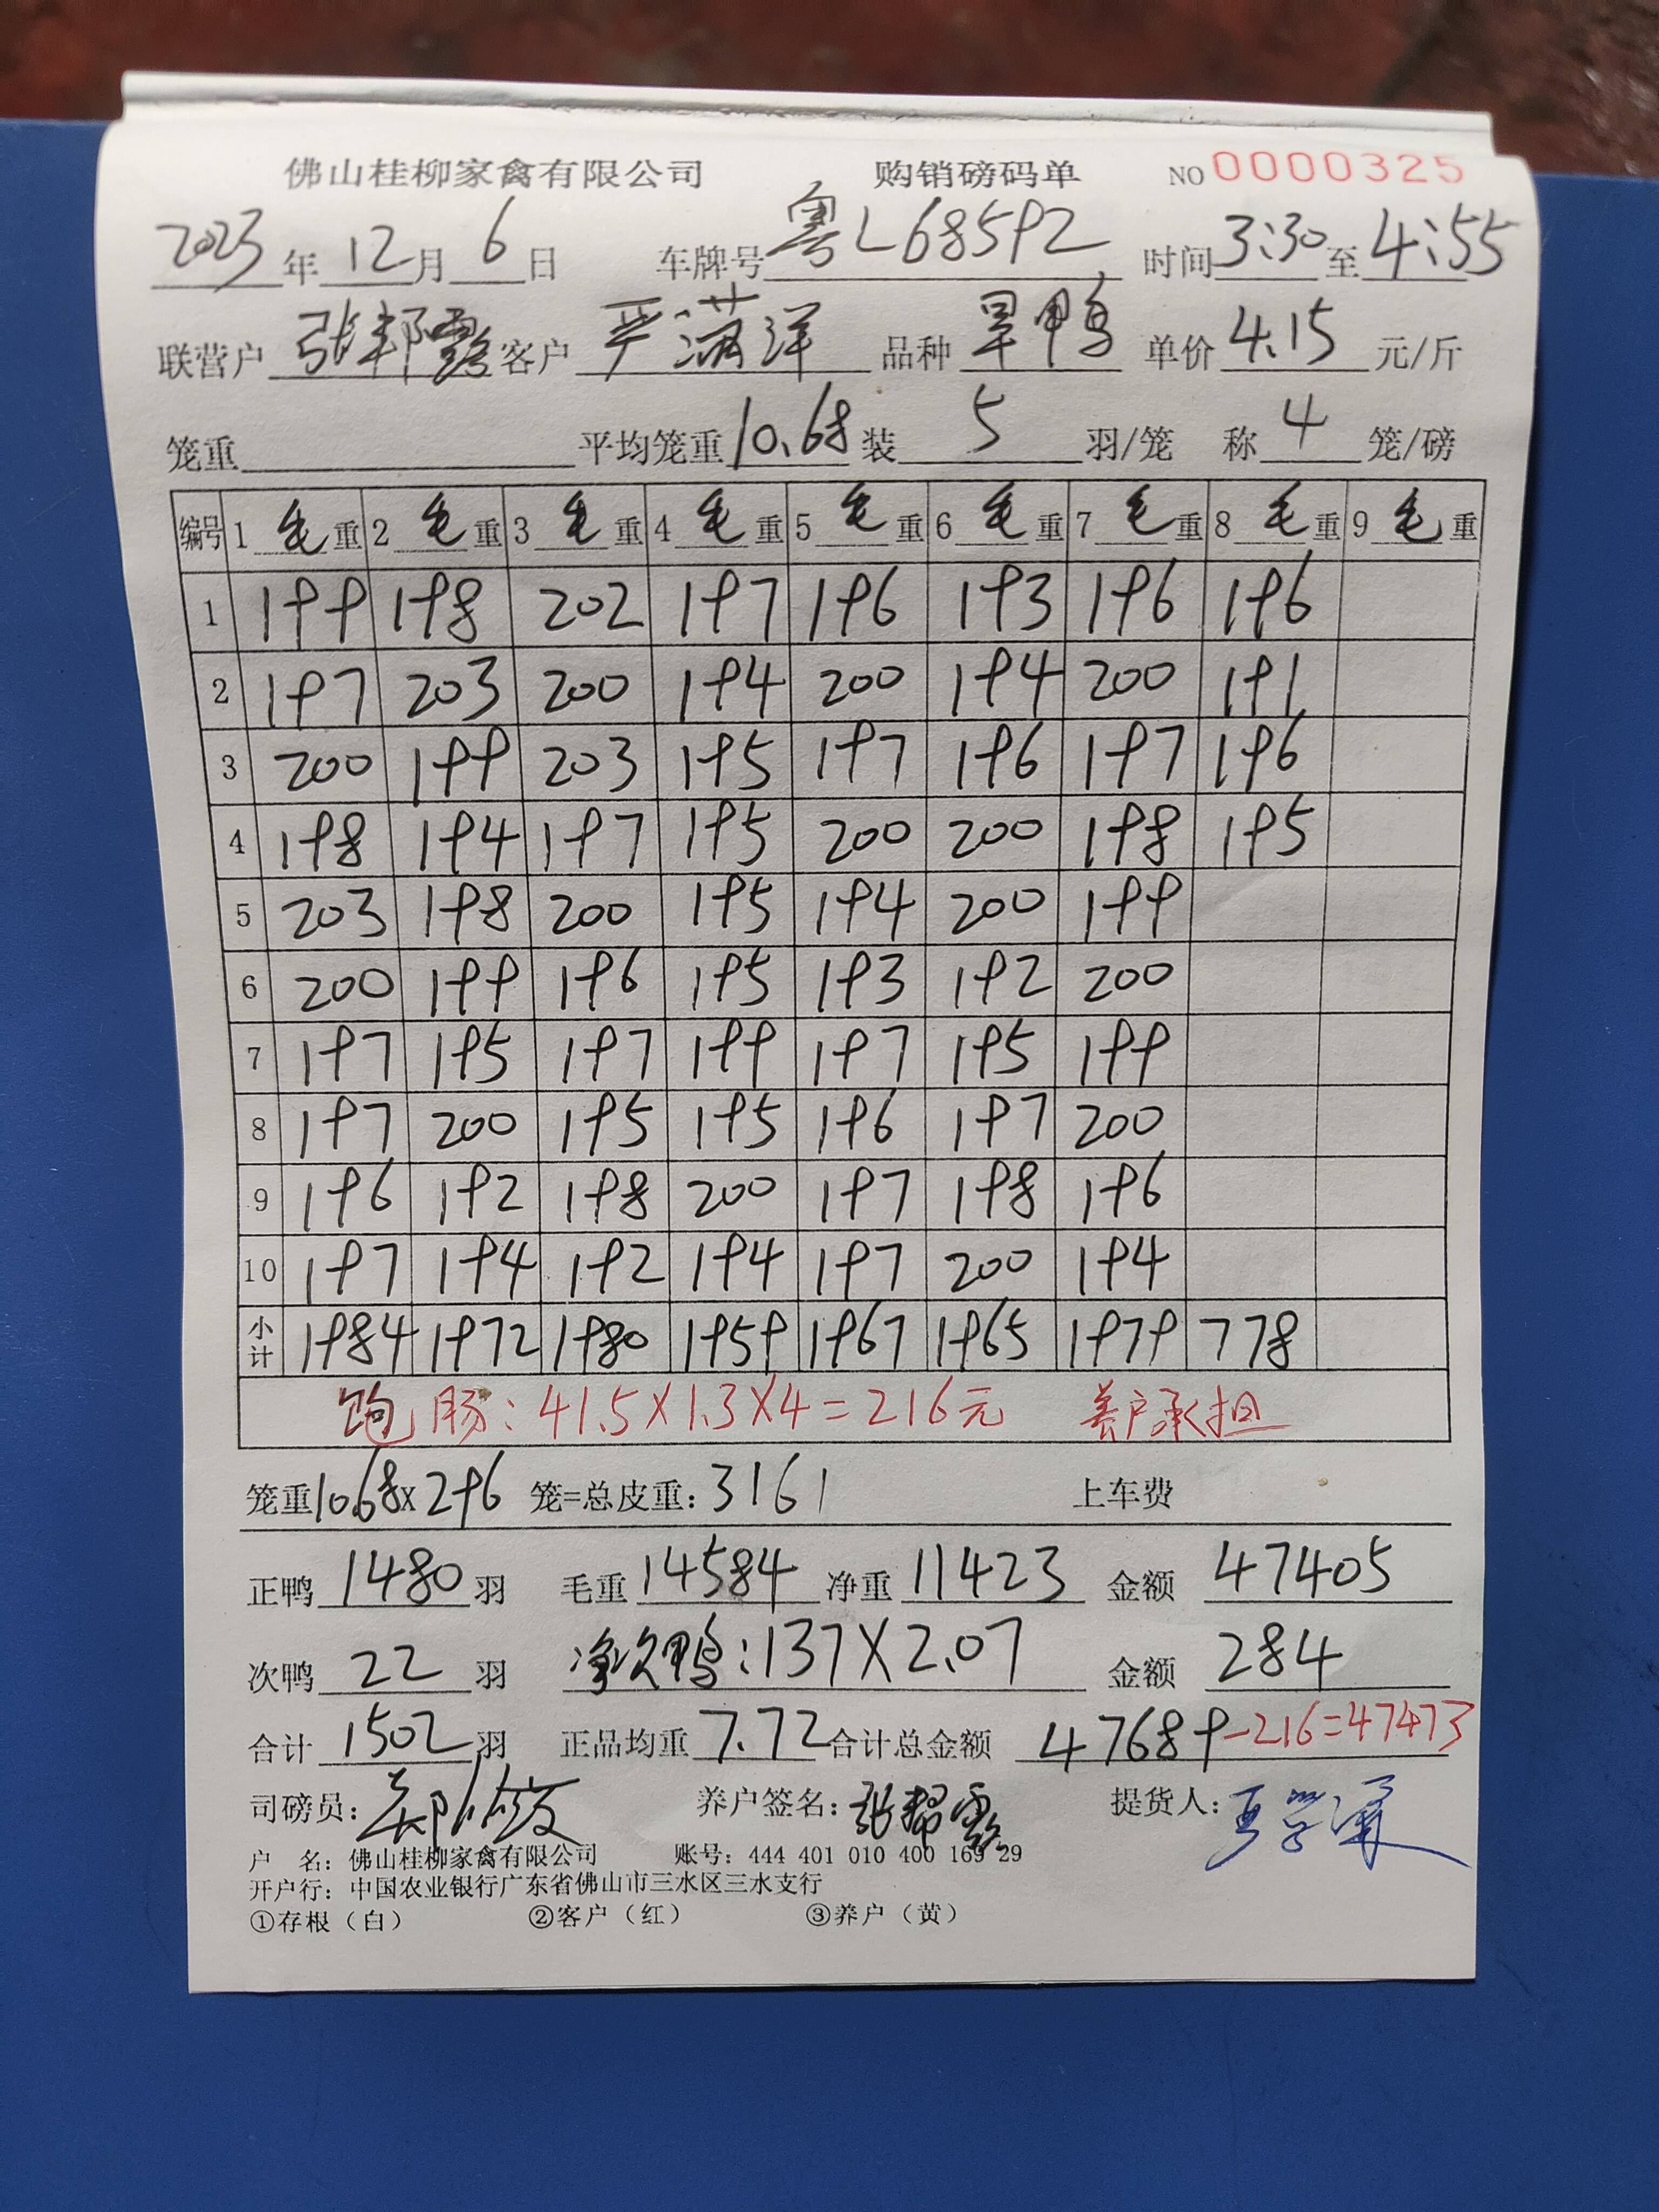 佛山桂柳家禽有限公司 购销磅码单 NO 0000325
2023年12月6日 车牌号粤L68592 时间3:30至4:55
联营户 张邦霞 客户 严满洋 品种 旱鸭 单价4.15元/斤
笼重 平均笼重10.68装5羽/笼 称4笼/磅
编号 1毛重 2毛重 3毛重 4毛重 5毛重 6毛重 7毛重 8毛重 9毛重
1 199 198 202 197 196 193 196 196
2 197 203 200 194 200 194 200 191
3 200 199 203 195 197 196 197 196
4 198 194 197 195 200 200 198 195
5 203 198 200 195 194 200 199
6 200 199 196 195 193 192 200
7 197 195 197 199 197 195 199
8 197 200 195 195 196 197 200
9 196 192 198 200 197 198 196
10 197 194 192 194 197 200 194
小计 1984 1972 1980 1959 1967 1965 1979 778
饱肠:41.5X1.3X4=216元 养户承担
笼重10.68x296笼=总皮重:3161 上车费
正鸭1480羽 毛重14584净重11423 金额47405
次鸭22羽 净次鸭:137X2.07 金额284
合计1502羽 正品均重7.72合计总金额47689-216=47473
司磅员: 养户签名: 提货人:
户 名:佛山桂柳家禽有限公司 账号:444 401 010 400 169 29
开户行:中国农业银行广东省佛山市三水区三水支行
①存根(白) ②客户(红) ③养户(黄)